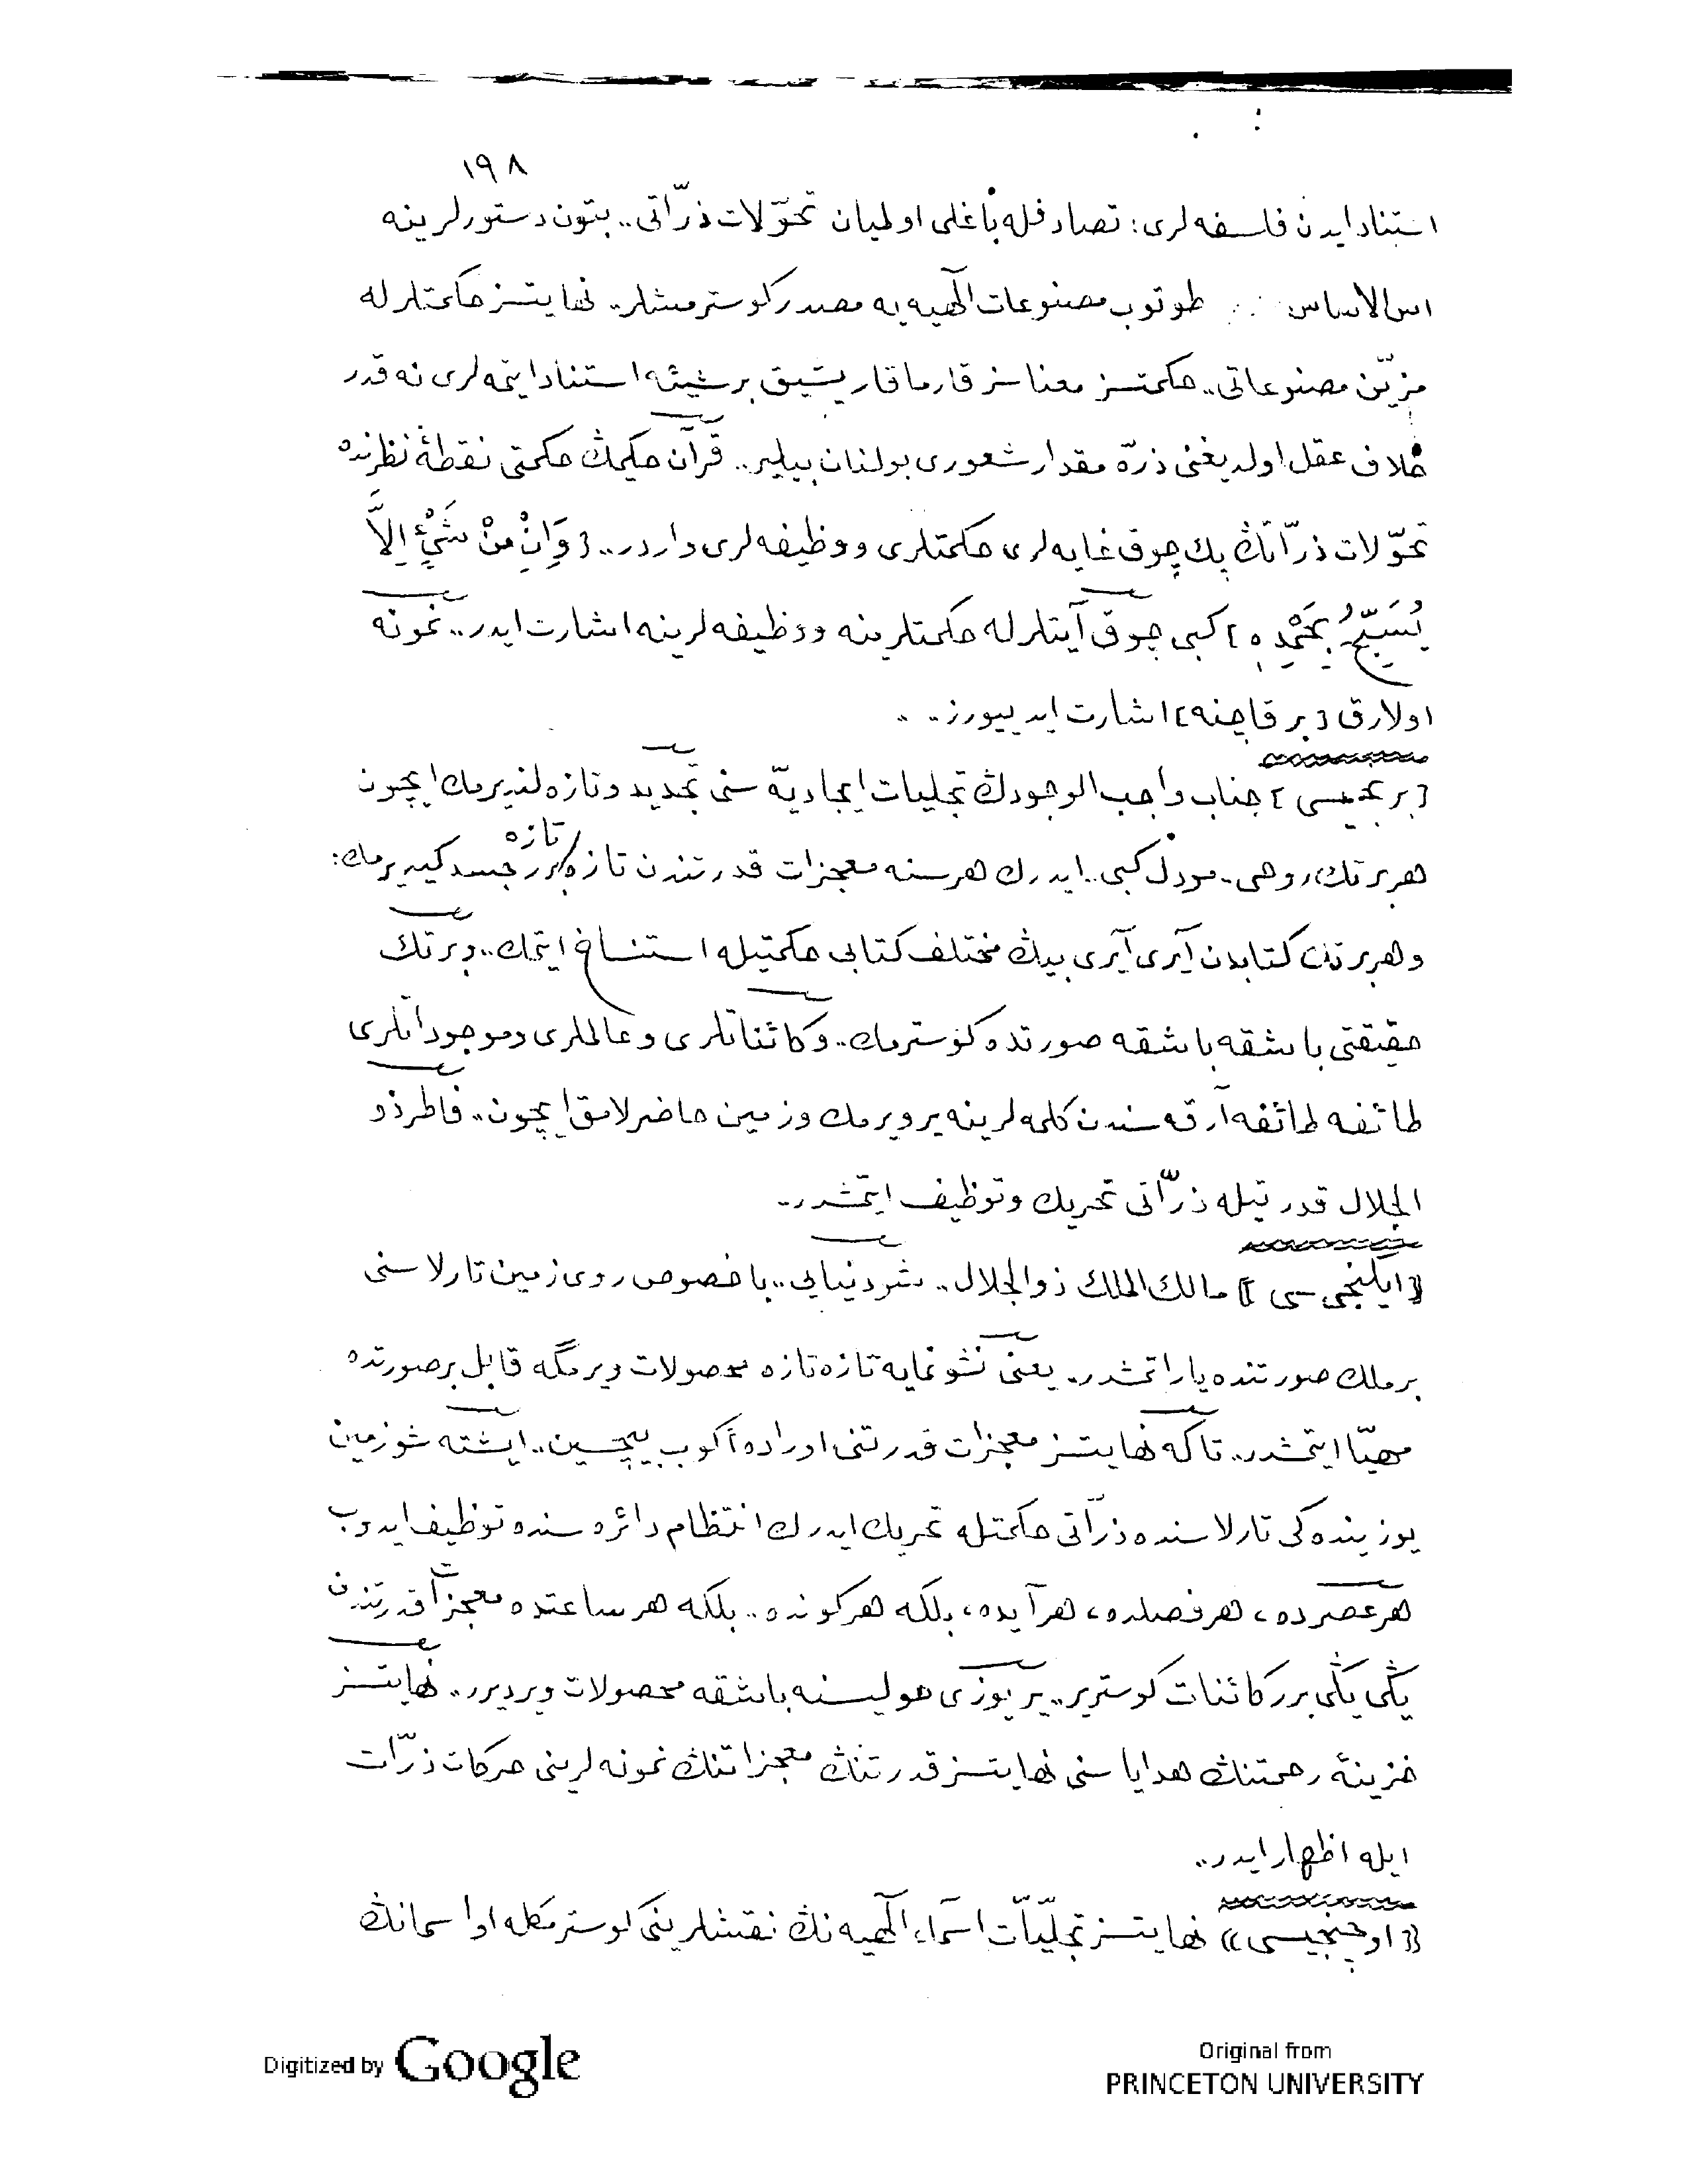 ١٩٨
استناد ايدن فلسفه‌لرى: تصادفله باغلى اولميان تحوّلات ذرّاتى.. بتون دستورلرينه
اس الاساس طوتوب مصنوعات الٓهيه‌يه مصدر كوسترمشلر.. نهايتسز حكمتلرله
مزيّن مصنوعاتى.. حكمتسز معناسز قارماقاريشيق برشيئه استناد ايتمه‌لرى نه قدر
خلاف عقل اولديغنى ذرّه مقدار شعورى بولنان بيلير.. قرآن حكيمڭ حكمتى نقطهٔ نظرنده
تحوّلات ذرّاتڭ پك چوق غايه‌لرى حكمتلرى ووظيفه‌لرى واردر.. [وَاِنْ مِنْ شَيْئٍ اِلاَّ
يُسَبِّحُ بِحَمْدِهِ] كبى چوق آيتلرله حكمتلرينه ووظيفه‌لرينه اشارت ايدر.. نمونه
اولارق [بر قاچنه] اشارت ايدييورز..
[برنجيسى] جناب واجب الوجودڭ تجليات ايجاديّه‌سنى تجديد وتازه‌لنديرمك ايچون
هربر تك روحى.. مودل كبى.. ايدرك هرسنه معجزات قدرتندن تازه تازه برر جسد كيديرمك:
وهربر تك كتابدن آيرى آيرى بيڭ مختلف كتابى حكمتيله استنساخ ايتمك.. وبر تك
حقيقتى باشقه باشقه صورتده كوسترمك.. وكائناتلرى وعالملرى وموجوداتلرى
طائفه طائفه آرقه‌سندن كلمه‌لرينه ير ويرمك وزمين حاضرلامق ايچون.. فاطر ذو
الجلال قدرتيله ذرّاتى تحريك وتوظيف ايتمشدر..
[ايكنجى‌سى] مالك الملك ذوالجلال.. شو دنيايى.. باخصوص روى زمين تارلاسنى
برملك صورتنده ياراتمشدر.. يعنى نشونمايه تازه تازه محصولات ويرمگه قابل برصورتده
مهيّا ايتمشدر.. تاكه نهايتسز معجزات قدرتنى اوراده أكوب بيچسين.. ايشته شو زمين
يوزينده‌كى تارلاسنده ذرّاتى حكمتله تحريك ايدرك انتظام دائره‌سنده توظيف ايدوب
هرعصرده، هرفصلده، هرآيده، بلكه هركونده.. بلكه هرساعتده معجزات قدرتندن
يڭى يڭى برر كائنات كوسترير.. ير يوزى حوليسنه باشقه محصولات ويرديرر.. نهايتسز
خزينهٔ رحمتنڭ هداياسنى نهايتسز قدرتنڭ معجزاتنڭ نمونه‌لرينى حركات ذرّات
ايله اظهار ايدر..
[اوچنجيسى] نهايتسز تجلّيات اسماء الٓهيه‌نڭ نقشلرينى كوسترمكله او اسمانڭ
Digitized by Google
Original from
PRINCETON UNIVERSITY